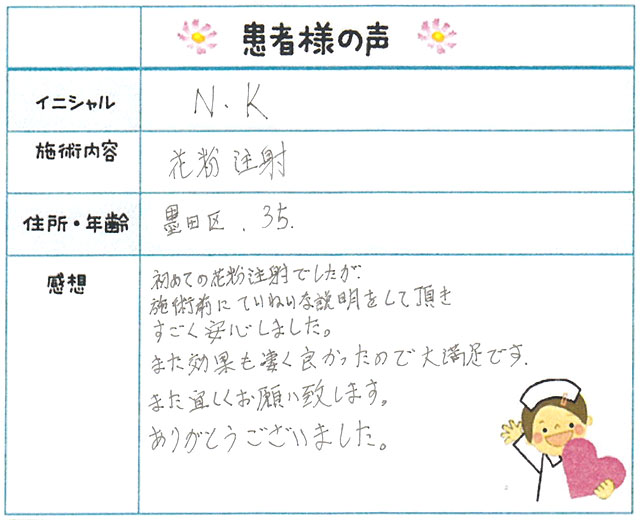 患者様の声
イニシャル
N.K
施術内容
花粉注射
住所・年齢
墨田区.35.
感想
初めての花粉注射でしたが、
施術前にていねいな説明をして頂き
すごく安心しました。
また効果も凄く良かったので大満足です.
また宜しくお願い致します。
ありがとうございました。